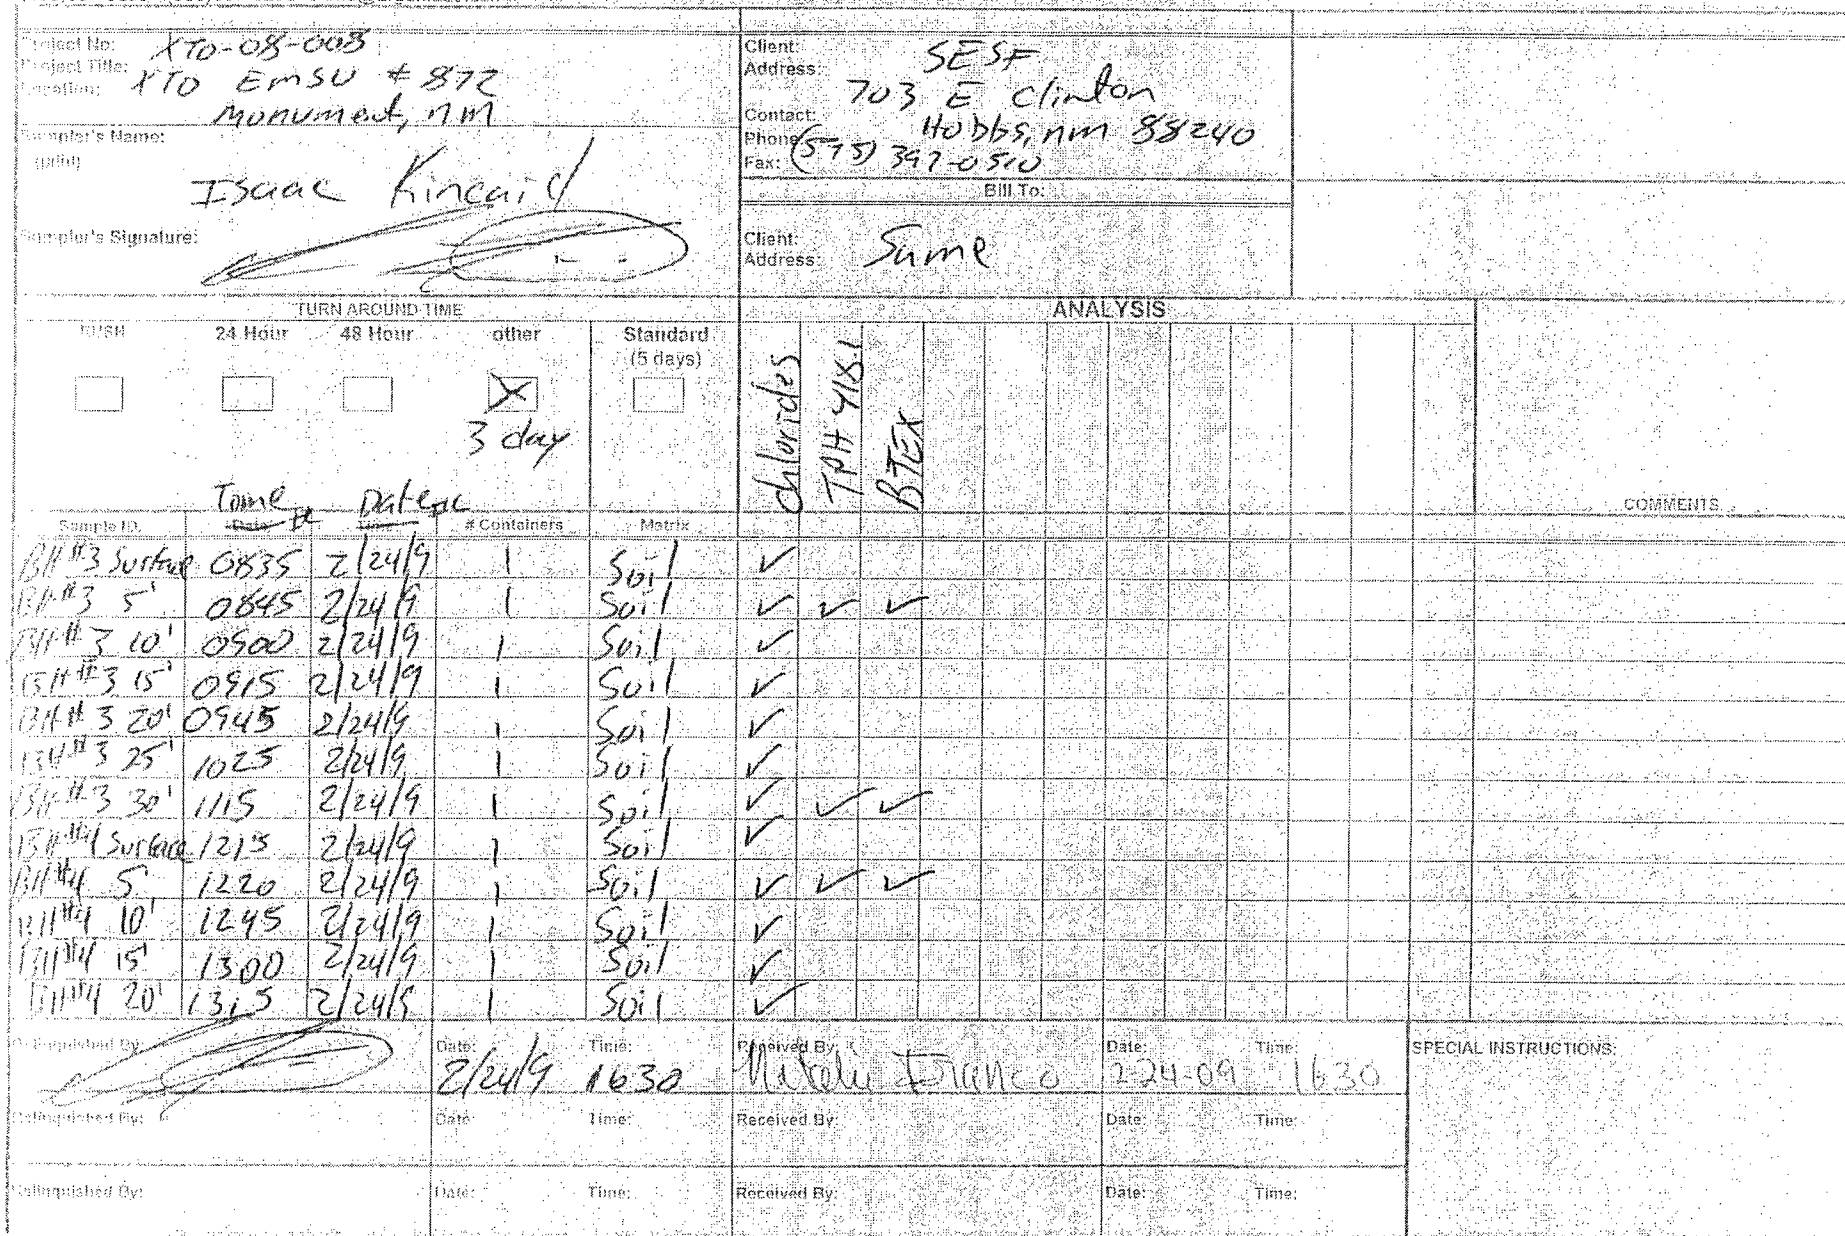 Project No: XTO-08-008
Project Title: XTO EMSU # 872
Location: Monument, NM
Sampler's Name:
(print)
Isaac Kincaid
Sampler's Signature:
Client: SESF
Address: 703 E Clinton
Hobbs, nm 88240
Contact:
Phone: (575) 397-0510
Fax:
Bill To:
Client: Same
Address:
TURN AROUND TIME
RUSH 24 Hour 48 Hour other Standard
(5 days)
X
3 day
ANALYSIS
chlorides TPH 418.1 BTEX
COMMENTS
Time Date
Sample ID. Date Time # Containers Matrix
BH #3 Surface 0835 2/24/9 1 Soil ✓
BH #3 5' 0845 2/24/9 1 Soil ✓ ✓ ✓
BH #3 10' 0900 2/24/9 1 Soil ✓
BH #3 15' 0915 2/24/9 1 Soil ✓
BH #3 20' 0945 2/24/9 1 Soil ✓
BH #3 25' 1025 2/24/9 1 Soil ✓
BH #3 30' 1115 2/24/9 1 Soil ✓ ✓ ✓
BH #4 Surface 1215 2/24/9 1 Soil ✓
BH #4 5' 1220 2/24/9 1 Soil ✓ ✓ ✓
BH #4 10' 1245 2/24/9 1 Soil ✓
BH #4 15' 1300 2/24/9 1 Soil ✓
BH #4 20' 1315 2/24/9 1 Soil ✓
Relinquished By: Date: 2/24/9 Time: 1630 Received By: Franco Date: 2-24-09 Time: 1630
SPECIAL INSTRUCTIONS:
Relinquished By: Date: Time: Received By: Date: Time:
Relinquished By: Date: Time: Received By: Date: Time: